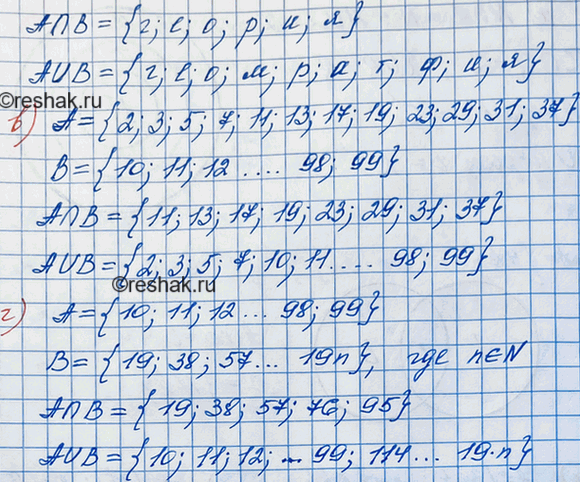 A∩B = {г; е; о; р; и; я}
A∪B = {г; е; о; м; р; а; т; ф; и; я}
©reshak.ru
в) A = {2; 3; 5; 7; 11; 13; 17; 19; 23; 29; 31; 37}
B = {10; 11; 12 .... 98; 99}
A∩B = {11; 13; 17; 19; 23; 29; 31; 37}
A∪B = {2; 3; 5; 7; 10; 11 .... 98; 99}
©reshak.ru
г) A = {10; 11; 12 ... 98; 99}
B = {19; 38; 57 ... 19n}, где n∈N
A∩B = {19; 38; 57; 76; 95}
A∪B = {10; 11; 12; ... 99; 114 ... 19·n}